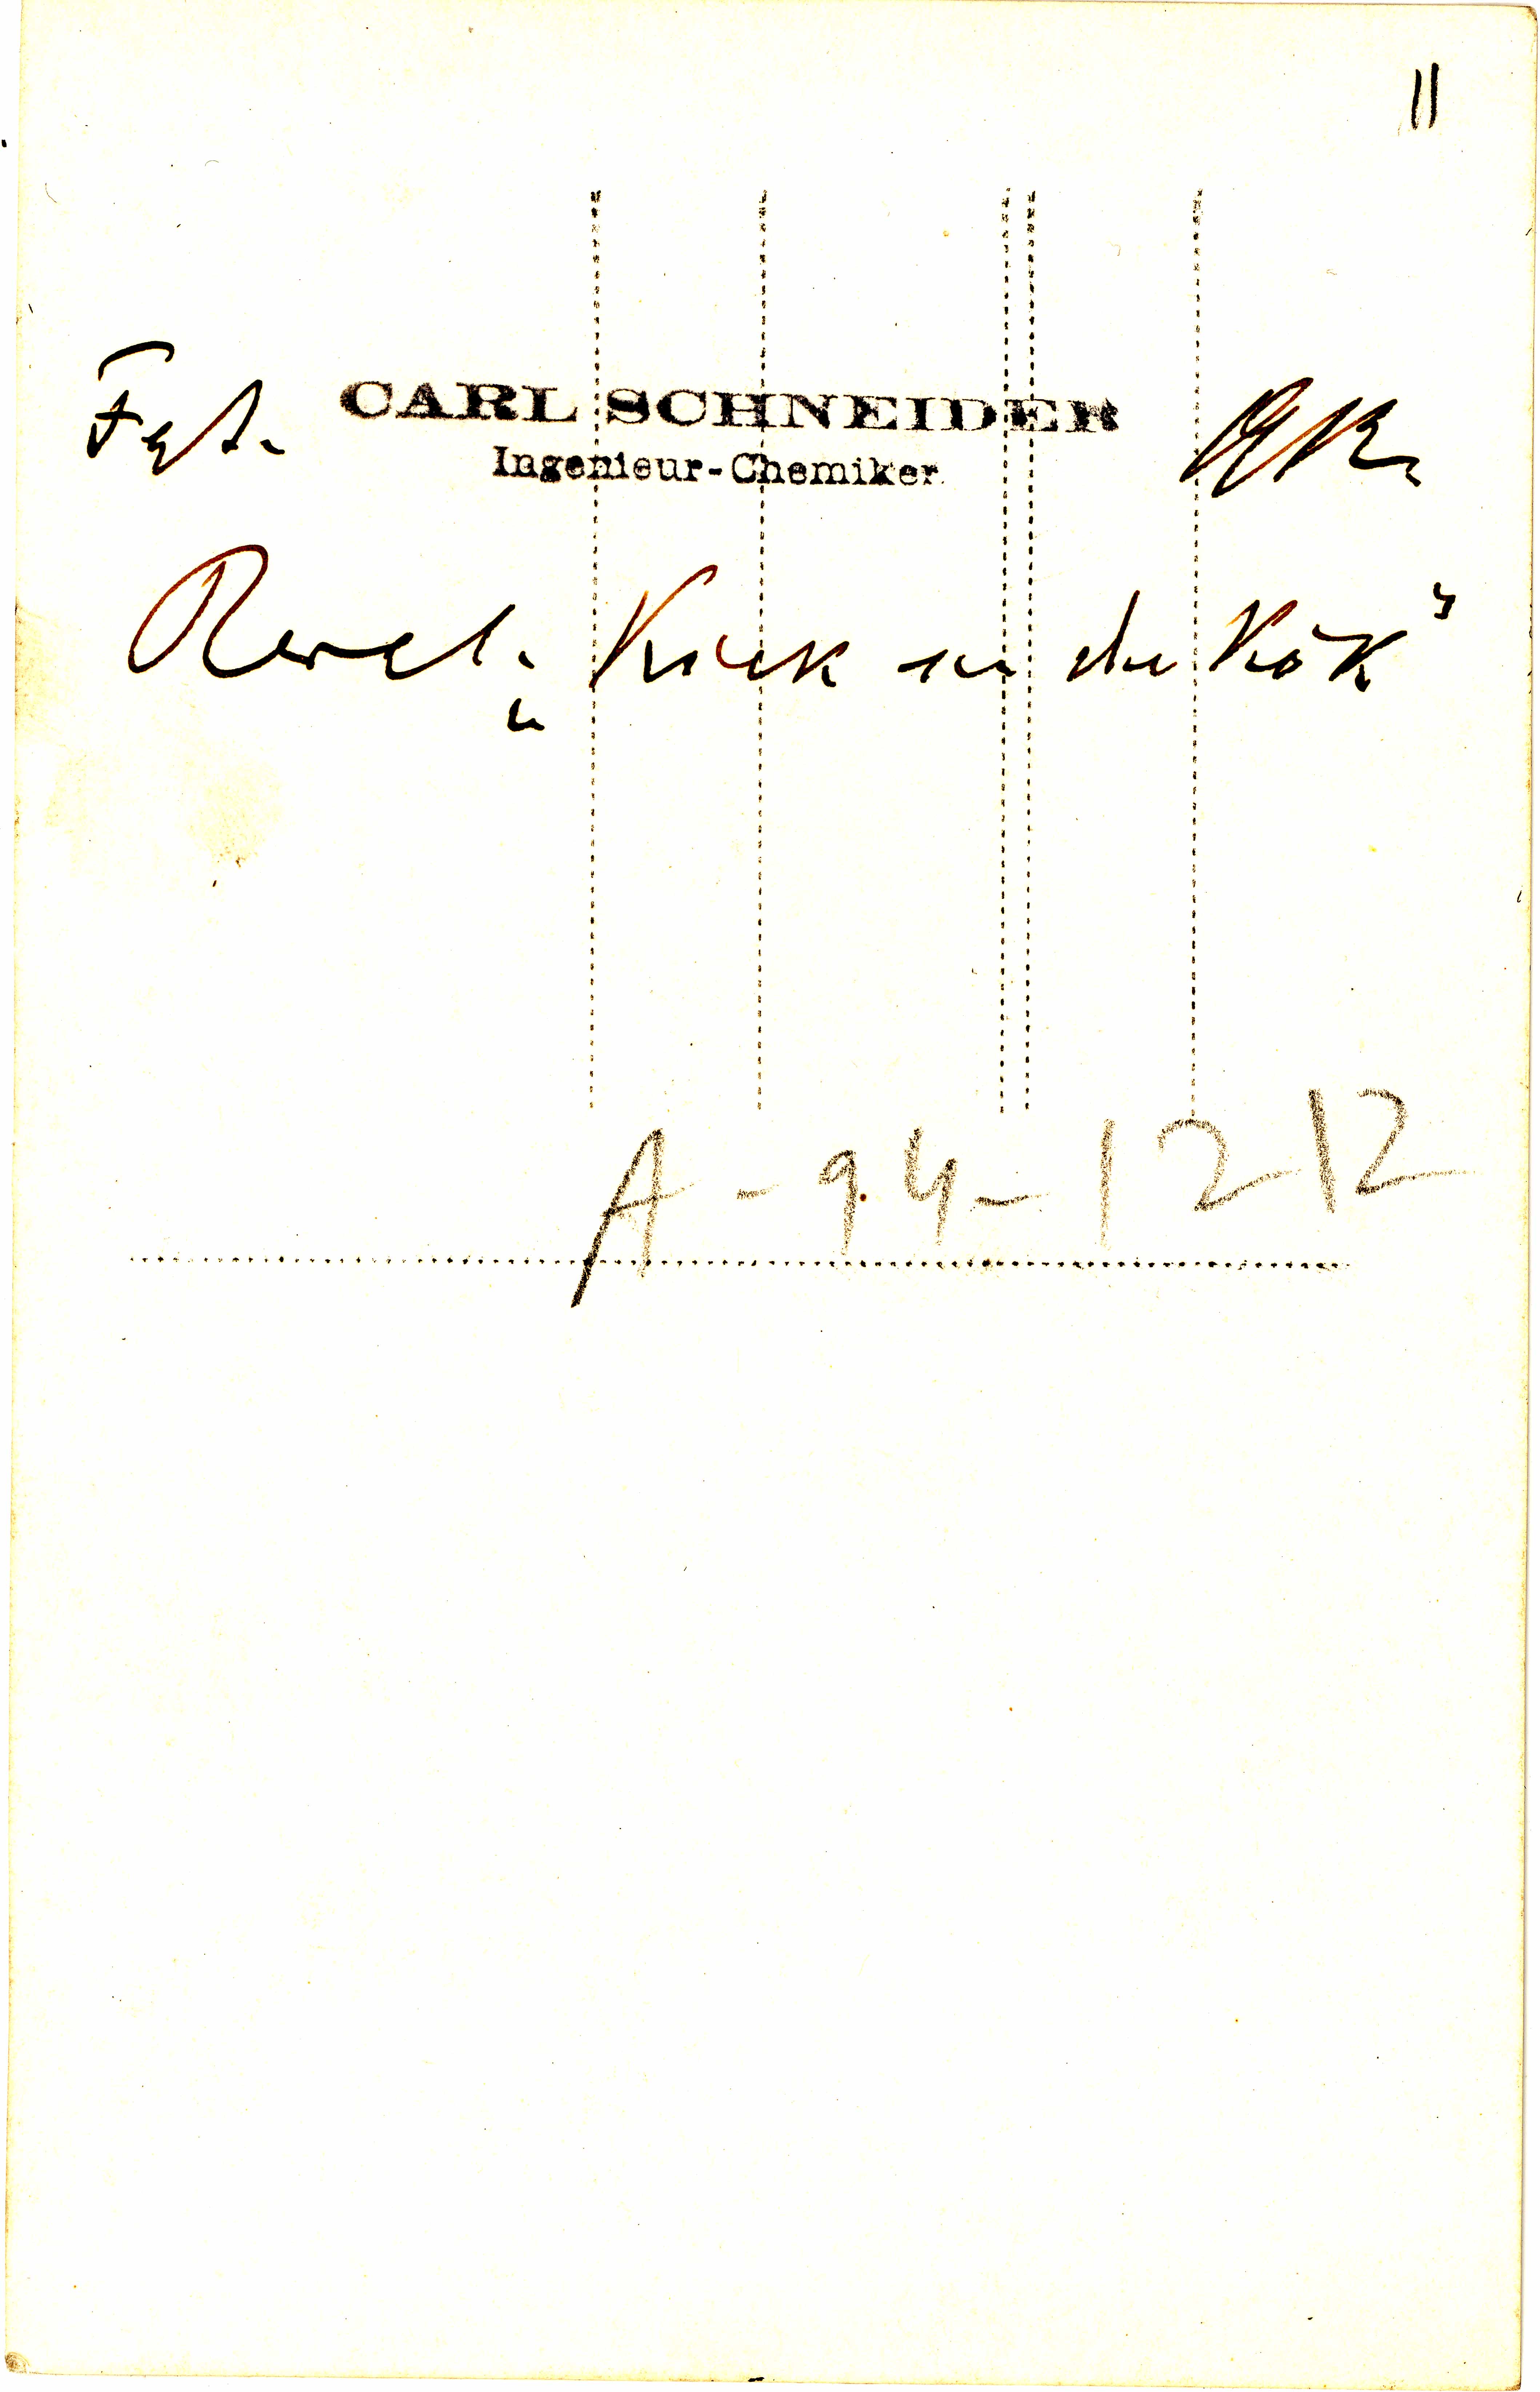 11
Fot. CARL SCHNEIDER
Ingenieur-Chemiker.
Reval. „Kiek in de Kök“
A-94-1212